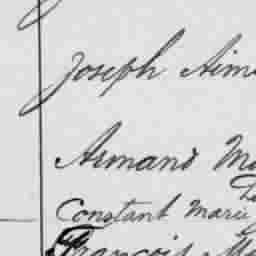 Joseph Aim
Armand Ma
Constant Marie
François Ma